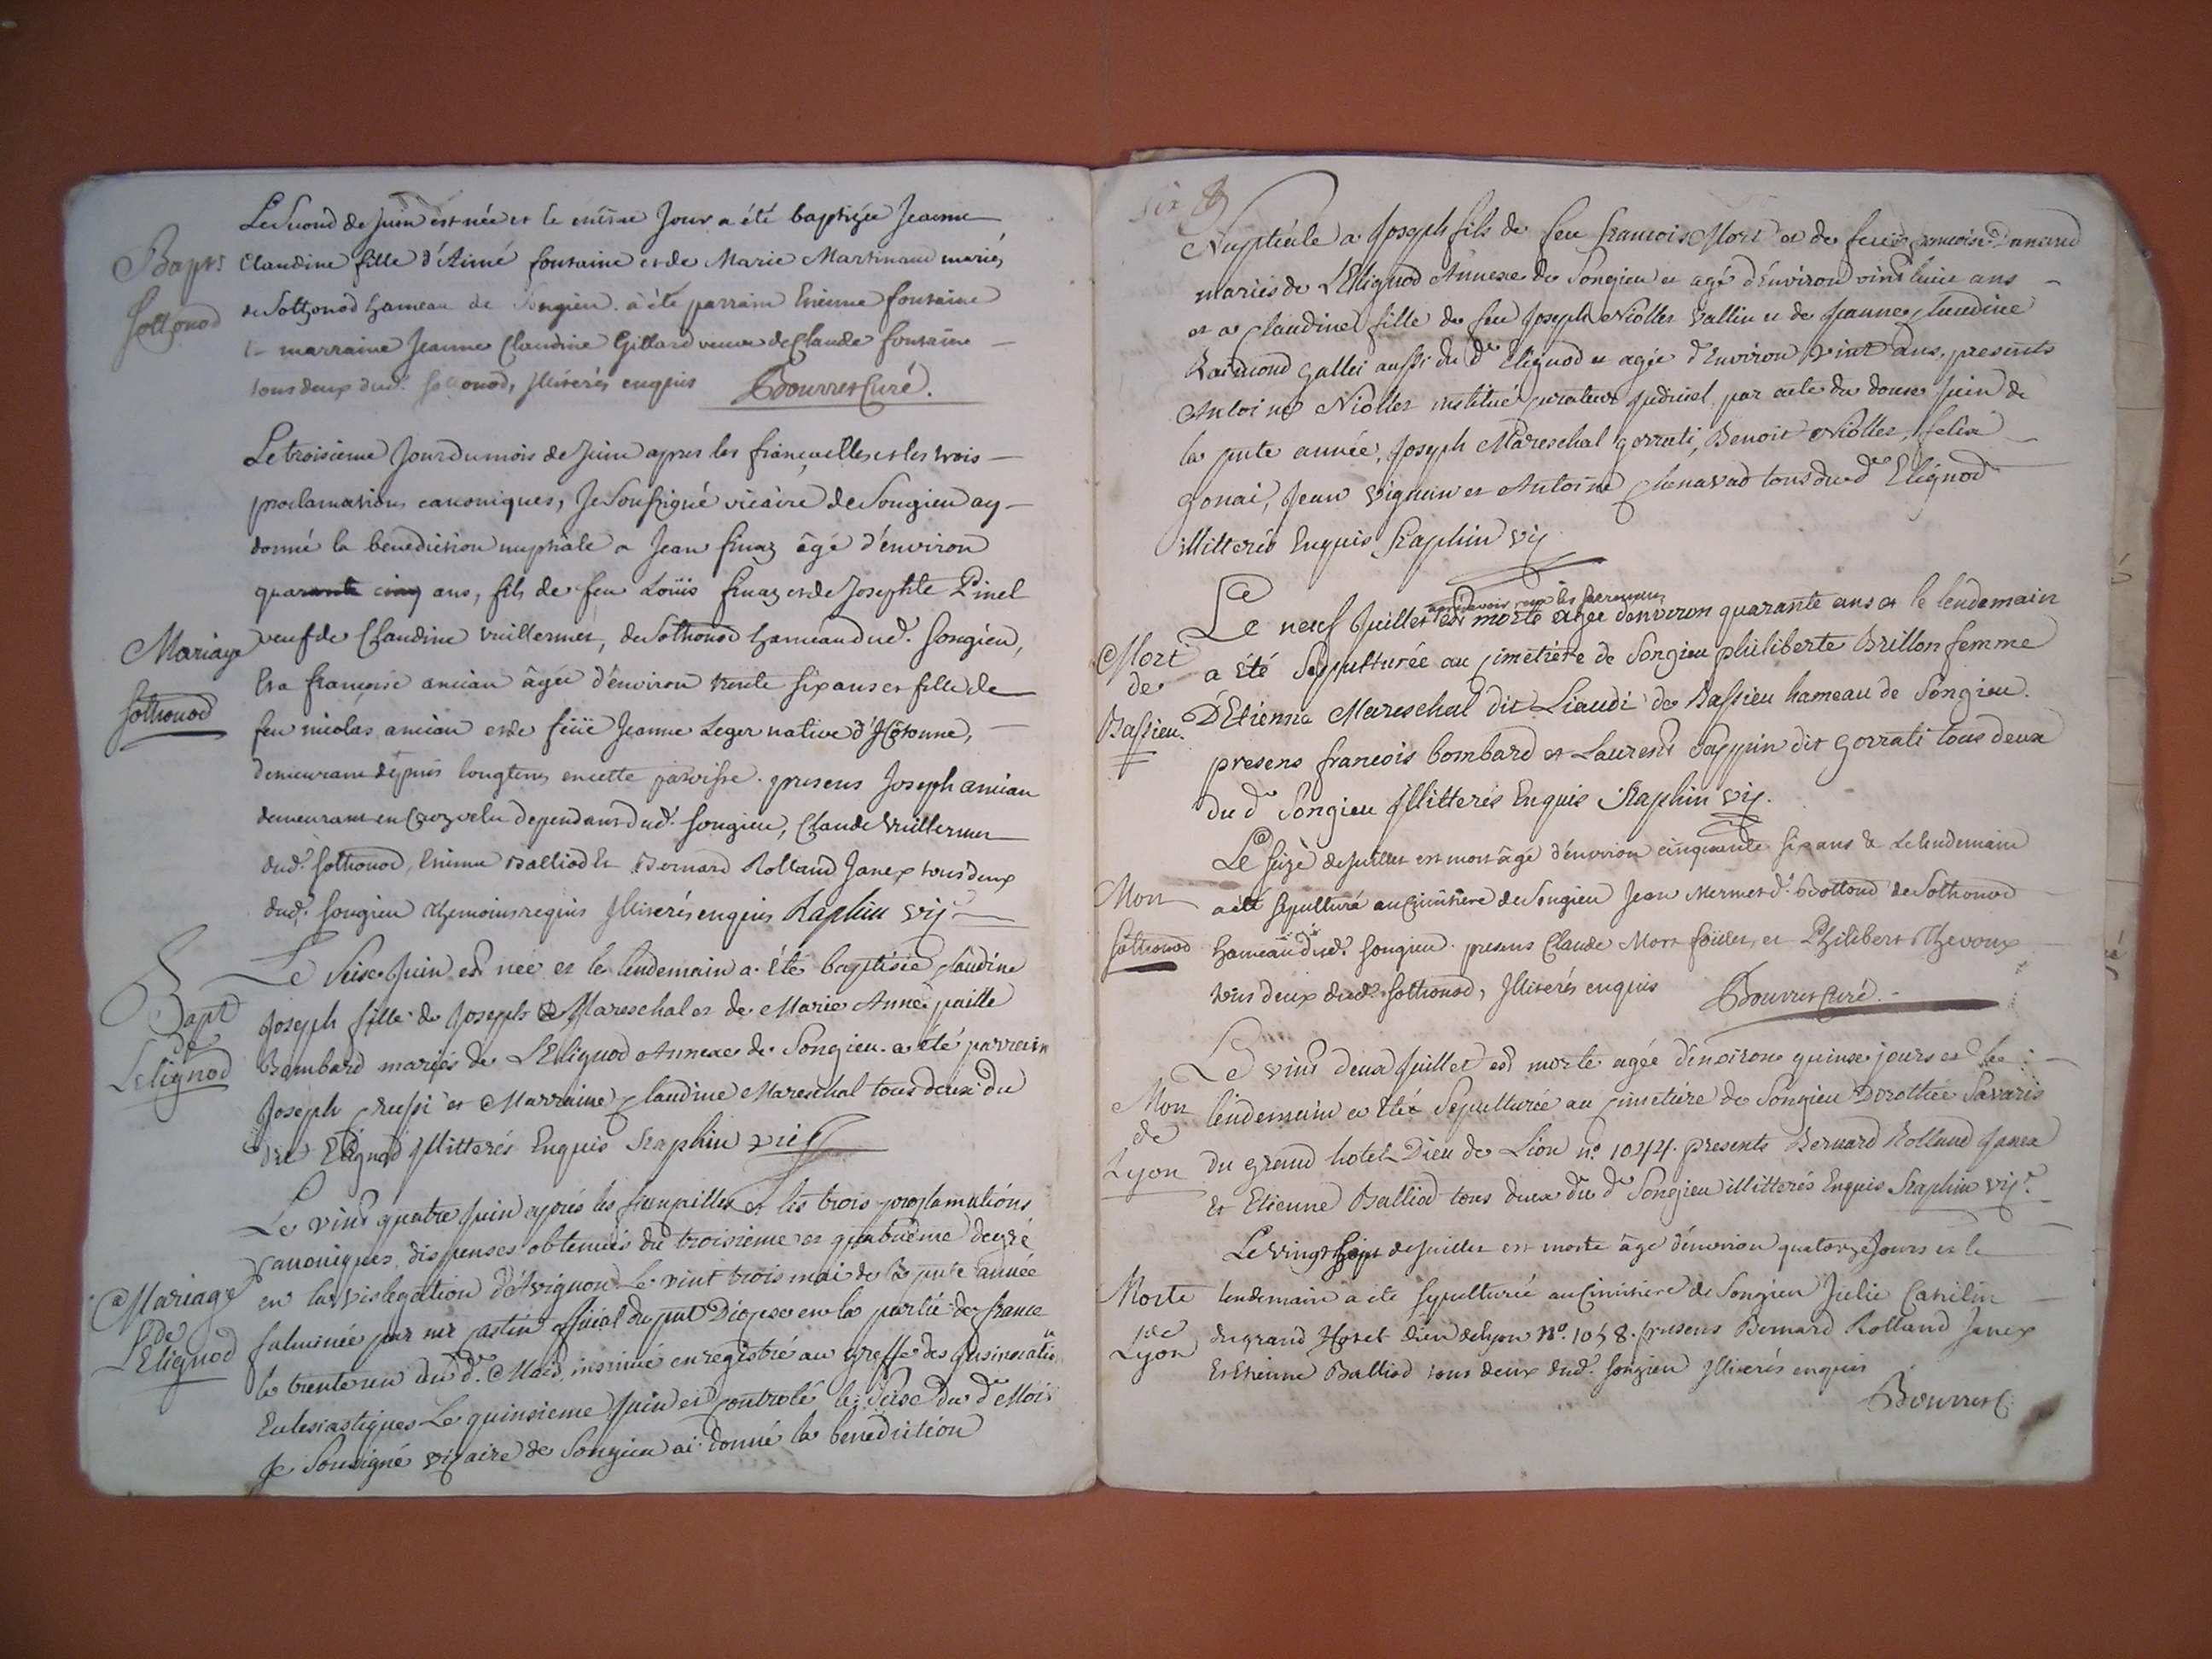 Le Second de Juin est née et le même Jour a été baptisée Jeanne
Bapt.s Claudine fille d'Aimé fontaine et de Marie Martinand mariés
Sothonod de Sothonod hameau de Songieu. a été parrain Etienne fontaine
marraine Jeanne Claudine Gillard veuve de Claude fontaine
tous deux dud. Sothonod, Illiterés enquis Bourret Curé.
Le troisieme Jour du mois de Juin apres les fiançailles et les trois
proclamations canoniques, Je Soussigné vicaire de Songieu ay
donné la benediction nuptiale a Jean finaz âgé d'environ
quarante cinq ans, fils de feu Loüis finaz et de Josephte Pinel
Mariage veuf de Claudine vuillermet, de Sothonod hameau dud. Songieu,
Sothonod Et a françoise ancian âgée d'environ trente six ans et fille de
feu nicolas ancian et de feüe Jeanne Leger native d'Hotonne,
demeurant depuis longtems en cette paroisse. presens Joseph ancian
demeurant en dependant dud. Songieu, Claude Vuillermet
dud. Sothonod, Etienne Balliod Et Bernard Rolland Janex tous deux
dud. Songieu themoins requis Illiterés enquis Raphin vij
Le Seise Juin est née et le lendemain a été baptisée Claudine
Bapt Joseph fille de Joseph Mareschal et de Marie Anne paille
de Bombard mariés de L'Elignod Annexe de Songieu. a été parrain
Lelignod Joseph Crussi et Marraine Claudine Mareschal tous deux du
dit Elignod Illitterés Enquis Raphin vic
Le vint quatre Juin aprés les fiançailles et les trois proclamations
Canoniques, dispenses obtenues du troisieme et quatrieme degré
en la vislegation d'Avignon Le vint trois mai de la pnte année
Mariage fulminée par mr official du pnt Diocese en la partie de france
de L'Elignod le trente un du d. Mois, insinué enregistré au greffe des Insinuations
Eclesiastiques Le quinsieme Juin et Controlé le Seise du d. Mois
Je Soussigné vicaire de Songieu ai donné la benediction
six
Nuptiale a Joseph fils de feu francois Mort et de feüe francoise
mariés de L'Elignod Annexe de Songieu et agé d'environ vint huit ans
et a Claudine fille de feu Joseph Niollet Vallin et de Jeanne Claudine
Raimond gallei aussi du d. Elignod et agée d'Environ vint ans, presents
Antoine Niollet institué curateur judiciel par acte du douse Juin de
la pnte année, Joseph Mareschal gorrati, Benoit Niollet, felix
gonai, Jean vignin et Antoine Chenavad tous du d. Elignod
illitterés Enquis Raphin vij
aprés avoir reçu les sacremens
Le neuf Juillet est morte agée d'environ quarante ans et le lendemain
Mort a été Sepulturée au Cimetiere de Songieu philiberte Brillon femme
de D'Etienne Mareschal dit Liaudi de Bassieu hameau de Songieu.
Bassieu. presens francois bombard et Laurent Pappin dit gorrati tous deux
du d. Songieu Illitterés Enquis Raphin vij.
Le Seize de Juillet est mort âgé d'environ cinquante six ans & Le lendemain
Mort a été sepulturé au Cimetiere de Songieu Jean Mermet d. Bottond de Sothonod
Sothonod hameau dud. Songieu. presens Claude Mort et Philibert Thevoux
tous deux dud. Sothonod, Illiterés enquis Bourret Curé.
Le vint deux Juillet est morte agée d'environ quinse jours et le
Mort lendemain a été Sepulturée au Cimetiere de Songieu Dorothée Savaris
de du grand hotel Dieu de Lion no. 1044. presents Bernard Rolland Janex
Lyon Et Etienne Balliod tous deux du d. Songieu illitterés Enquis Raphin vij.
Le Vingt Sept de Juillet est morte âgé d'environ quatorze Jours et le
Morte lendemain a été sepulturée au Cimetiere de Songieu Julie Catilin
de Lyon du grand Hotel Dieu de Lyon No. 1058. presens Bernard Rolland Janex
Et Etienne Balliod tous deux dud. Songieu Illiterés enquis
Bourret C.